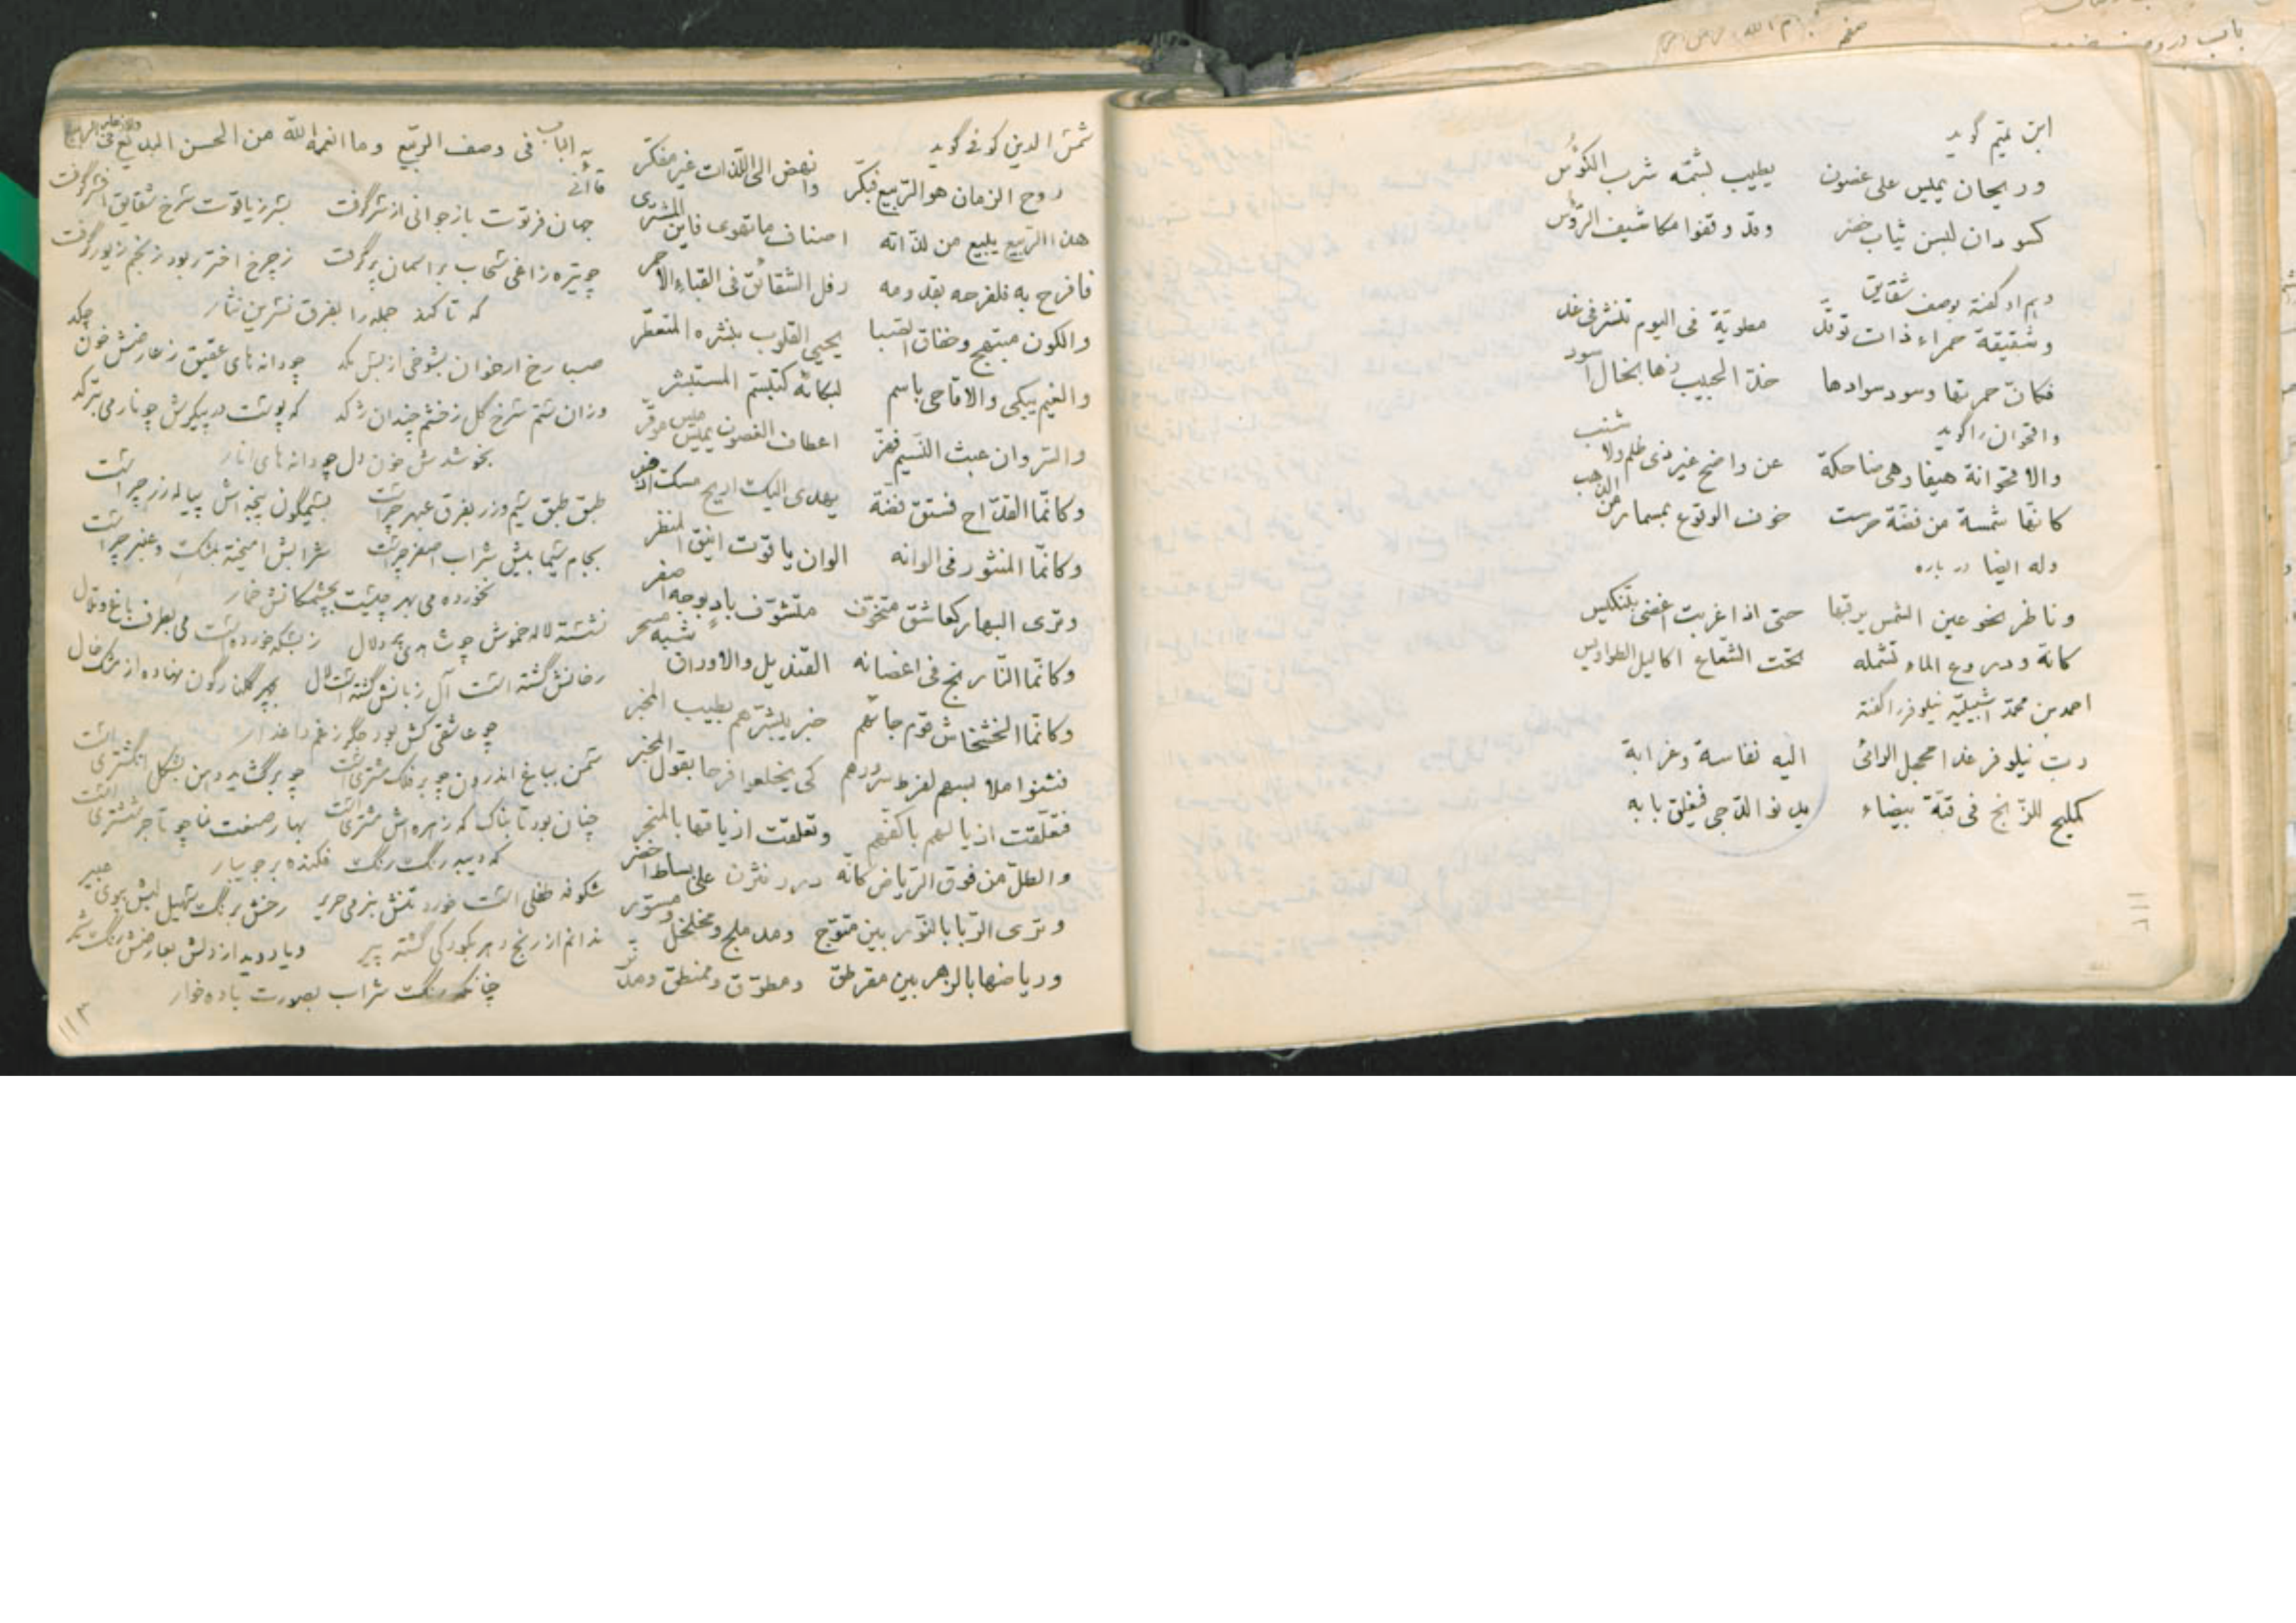 ابن تمیم گوید
وریحان یمیس علی غصون یطیب بشمّه شرب الکؤس
کسودان لبسن ثیاب خضر وقد وقفوا مکاشیف الرؤس
وهم او گفته بوصف شقایق
وشقیقة حمراء ذات توقّد مطویّة فی الیوم تنشر فی غد
فکانّ حمرتها وسود سوادها خدّ الحبیب زها بخال اسود
واقحوان را گوید
والاقحوانة هیفا وهی ضاحکة عن واضح غیر ذی ظلم ولا شنب
کانها شمسة من فضة حرست خوف الوقوع بمسمار من الذهب
وله ایضا در باره
وناظر نحو عین الشمس یرقبها حتی اذا غربت اغضی بتنکیس
کانه ودروع الماء تشمله تحت الشعاع اکالیل الطواویس
احمد بن محمّد اشبیلیّه نیلوفر را گفته
ربّ نیلوفر غدا محجل الرائی الیه نفاسة وغرابة
کملیح للزنج فی قبّة بیضاء یدنو الدّجی فیغلق بابه
١١٢
شمس الدین کوفی گوید
روح الزمان هو الرّبیع فبکّر وانهض الی اللذات غیر مفکّر
هذا الربیع یبیع من لذّاته اصناف ما تهوی فاین المشتری
فافرح به فلفرحه بقدومه رفل الشقائق فی القباء الاحمر
والکون مبتهج وخفاق الصبا یحیی القلوب بنشره المتعطّر
والغیم یبکی والاقاحی باسم لبکائه کتبسّم المستبشر
والسّروان عبث النّسیم فهزّ اعطاف الغصون یمیس میس موقّر
وکانّما القدّاح فستق فضة یهدی الیک اریج مسک اذفر
وکانّما المنثور فی الوانه الوان یاقوت انیق المنظر
وتری البهار کعاشق متخوّف متشوّف بادٍ بوجه اصفر
وکانّما النّارنج فی اغصانه القندیل والاوراق شبه مسحر
وکانّما الخشخاش قوم جائهم خبر یبشّرهم بطیب المخبر
فثنوا ملابسهم لفرط سرورهم کی یخلعوا فرحا بقول المخبر
فتعلّقت اذیالهم باکفهم وتعلقت ازیاقها بالمنحر
والطلّ من فوق الرّیاض کانّه درر نثرن علی بساط اخضر
وتری الرّبا بالنّور بین متوّج ومدملج ومخلخل ومسوّر
وریاضها بالزهر بین مقرطق ومطوّق وممنطق ومدنّر
الباب فی وصف الرّبیع وما انعمه الله من الحسن البدیع فی
قاآنی
جهان فرتوت باز جوانی از سر گرفت بسر ز یاقوت سرخ شقایق افسر گرفت
چو تیره زاغی سحاب بر آسمان پر گرفت ز چرخ اختر ربود ز نجم زیور گرفت
که تا کند جمله را بفرق نسرین نثار
صبا رخ ارغوان بشوخی از بس مکد چو دانه های عقیق ز عارضش خون چکد
وزان ستم سرخ گل ز خشم چندان ژکد که پوست در پیکرش چو نار می بترکد
بخوشدش خون دل چو دانه های انار
طبق طبق سیم وزر بفرق عبهر چراست بسیمگون پنجه اش پیاله زر چراست
بجام سیماییش شراب اصفر چراست شرابش امیخته بمشک وعنبر چراست
نخورده می بهر چیست بچشمکانش خمار
نشسته لاله خموش چو شاهدی پر دلال ز بسکه خورده است می بطرف باغ وتلال
رخانش گشته است آل زبانش گشته است لال بچهر گلنارگون نهاده از مشک خال
چو عاشقی کش بود جگر ز غم داغدار
سمن بباغ اندرون چو بر فلک مشتری است چو برگ بید وسمن بشکل انگشتری است
چنان بود تابناک که زهره اش مشتری است بهار صنعت نما چو تاجر ششتری است
که دیبه رنگ رنگ فکنده بر جویبار
شکوفه طفلی است خورد تنش بنرمی حریر رخش برنگ سهیل لبش ببوی عبیر
ندانم از رنج دهر بکودکی گشته پیر ویا دوید از دلش بعارضش رنگ شیر
چنانکه رنگ شراب بصورت باده خوار
١١٣